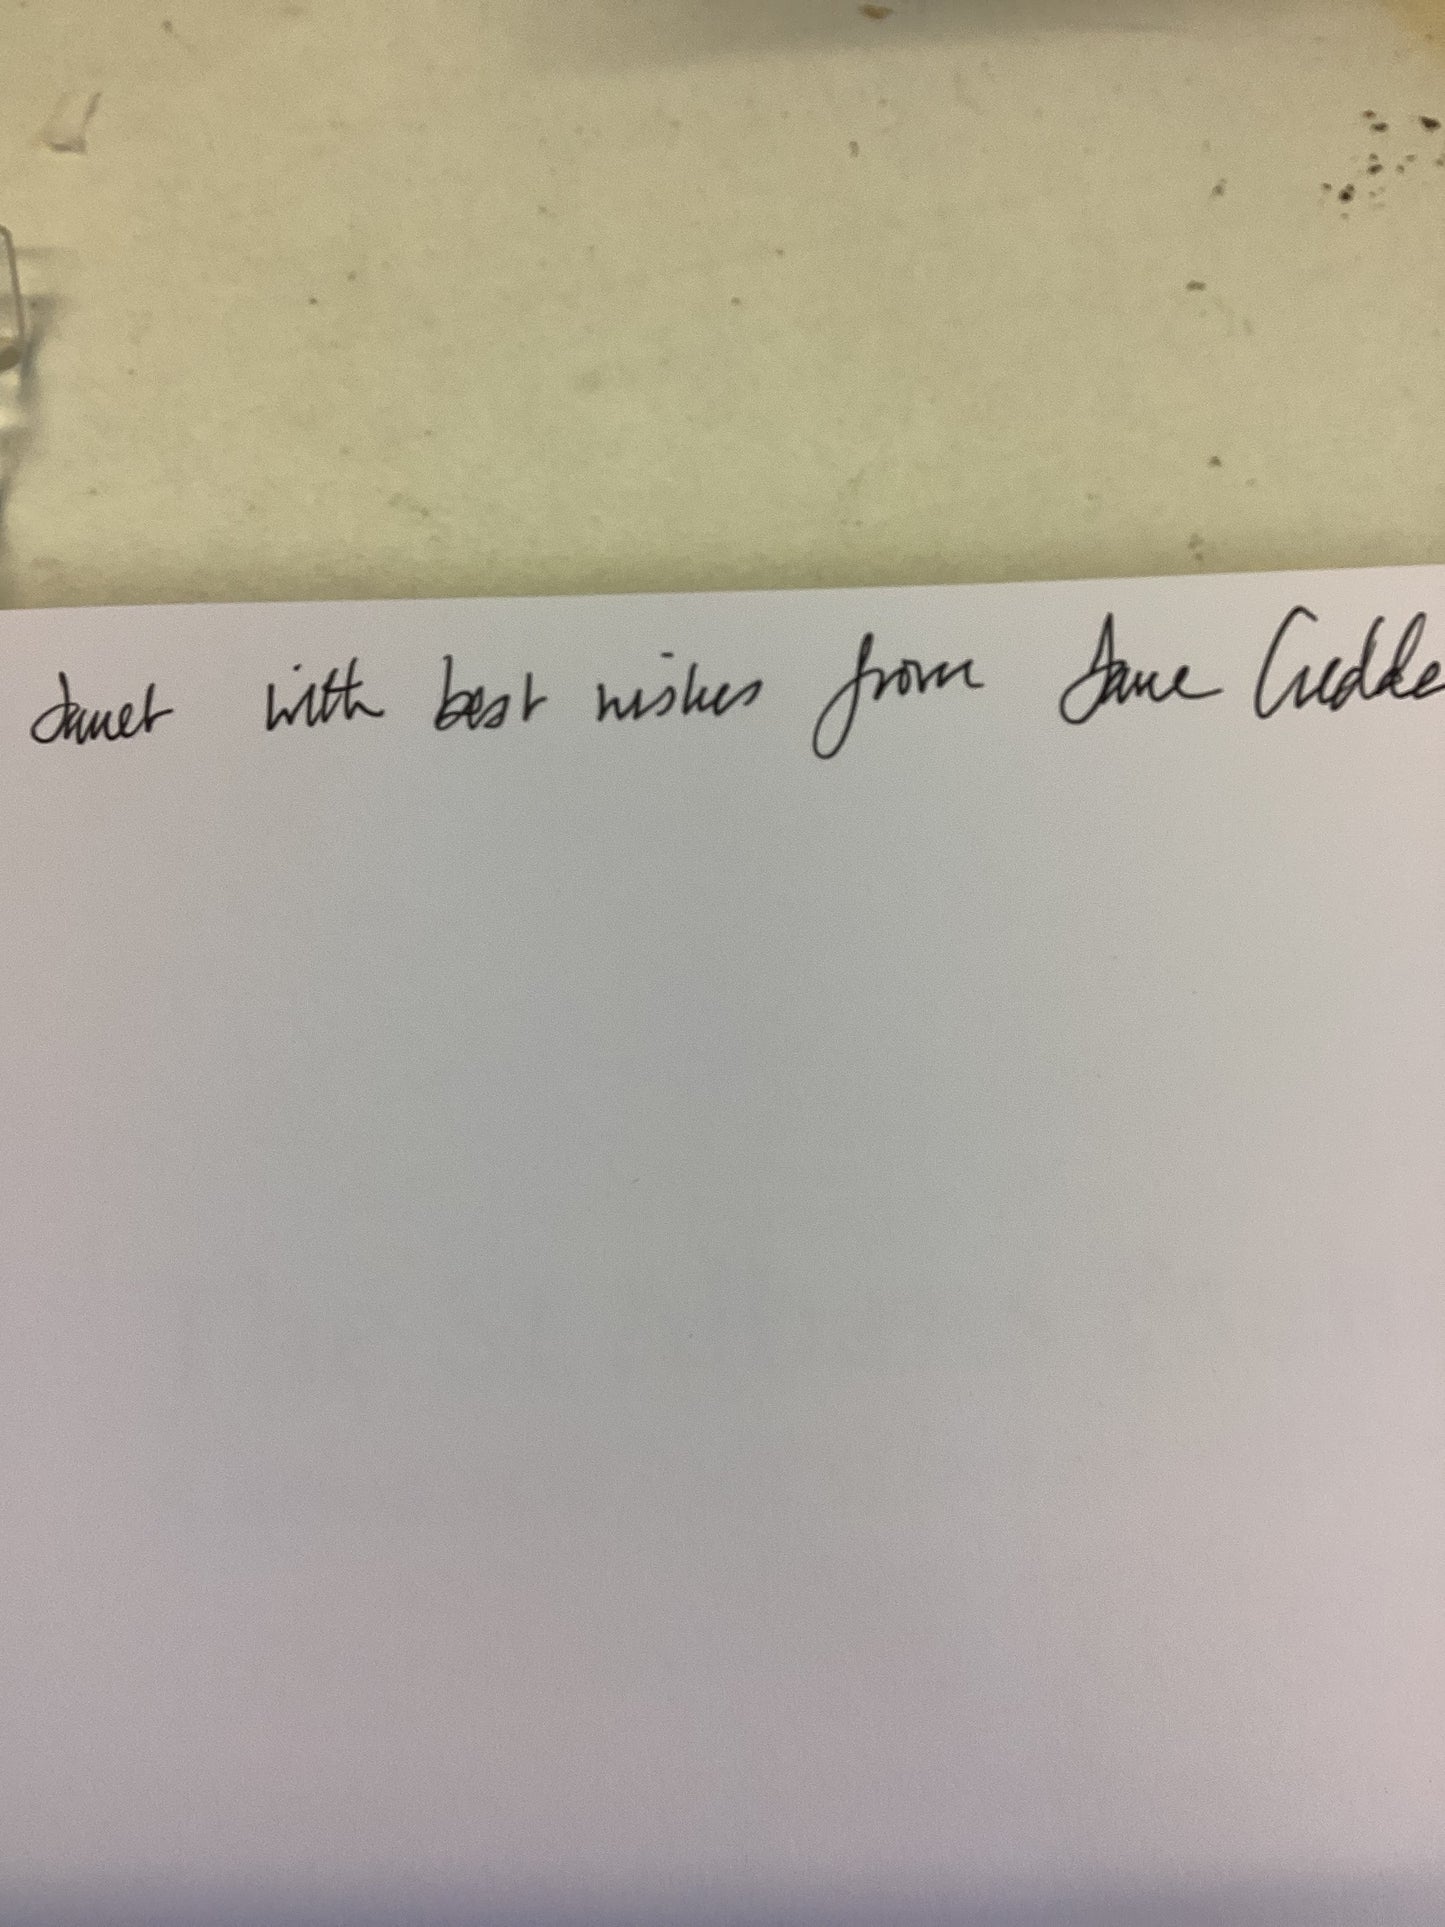 Janet with best wishes from Jane